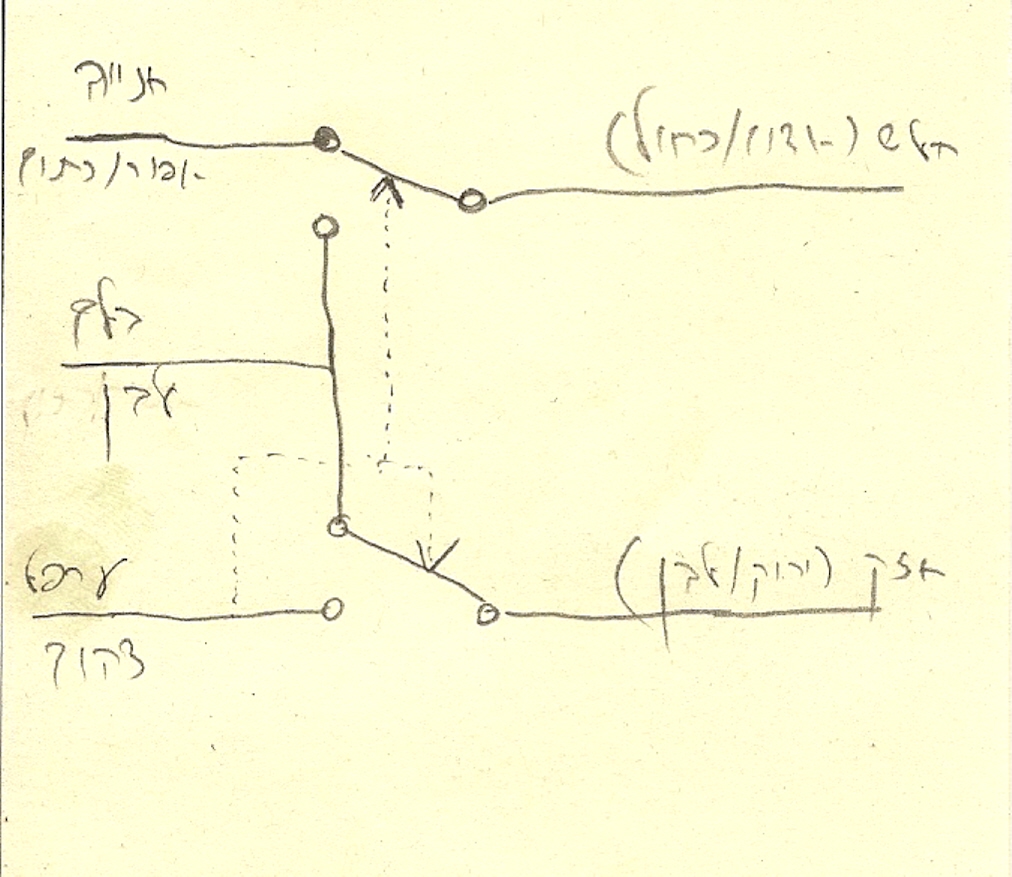 חנייה
אפור/כתום
חלש (אדום/כחול)
לבן
ערפל
צהוב
חזק (ירוק/לבן)